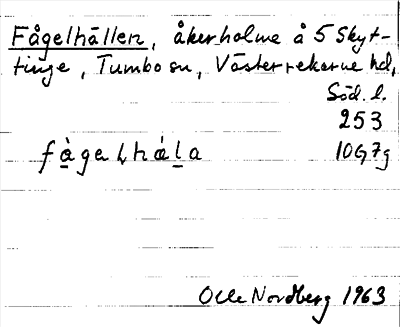 Fågelhällen, åkerholme å 5 Skyt-
tinge, Tumbo sn, Västerrekarne hd,
Söd. l.
253
fàgalhála 10G7g
Olle Nordberg 1963